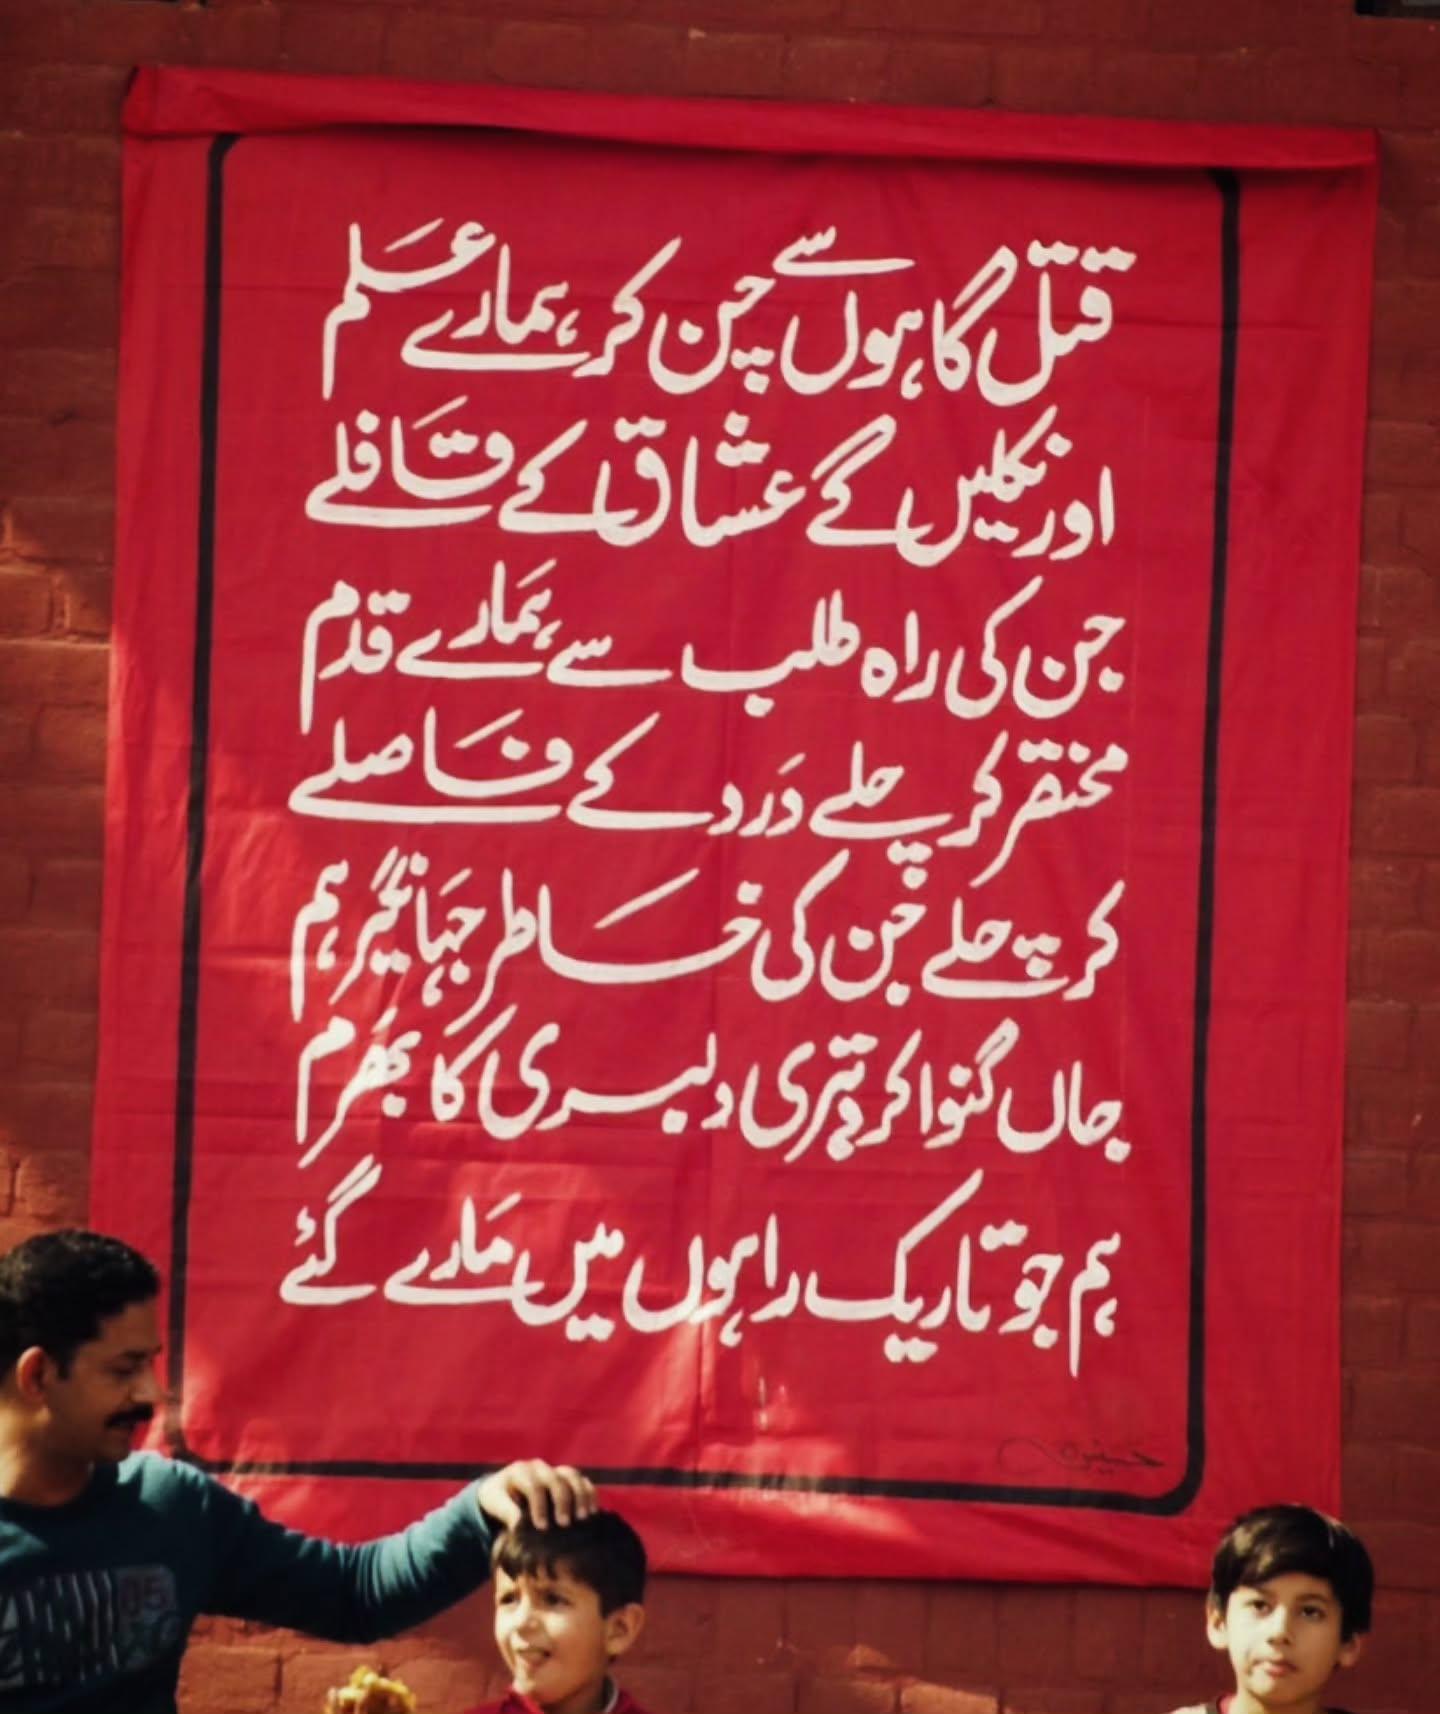 قتل گاہوں سے چن کر ہمارے علم
اور نکلیں گے عشاق کے قافلے
جن کی راہ طلب سے ہمارے قدم
مختصر کر چلے درد کے فاصلے
کر چلے جن کی خاطر جہانگیر ہم
جاں گنوا کر تیری دلبری کا بھرم
ہم جو تاریک راہوں میں مارے گئے